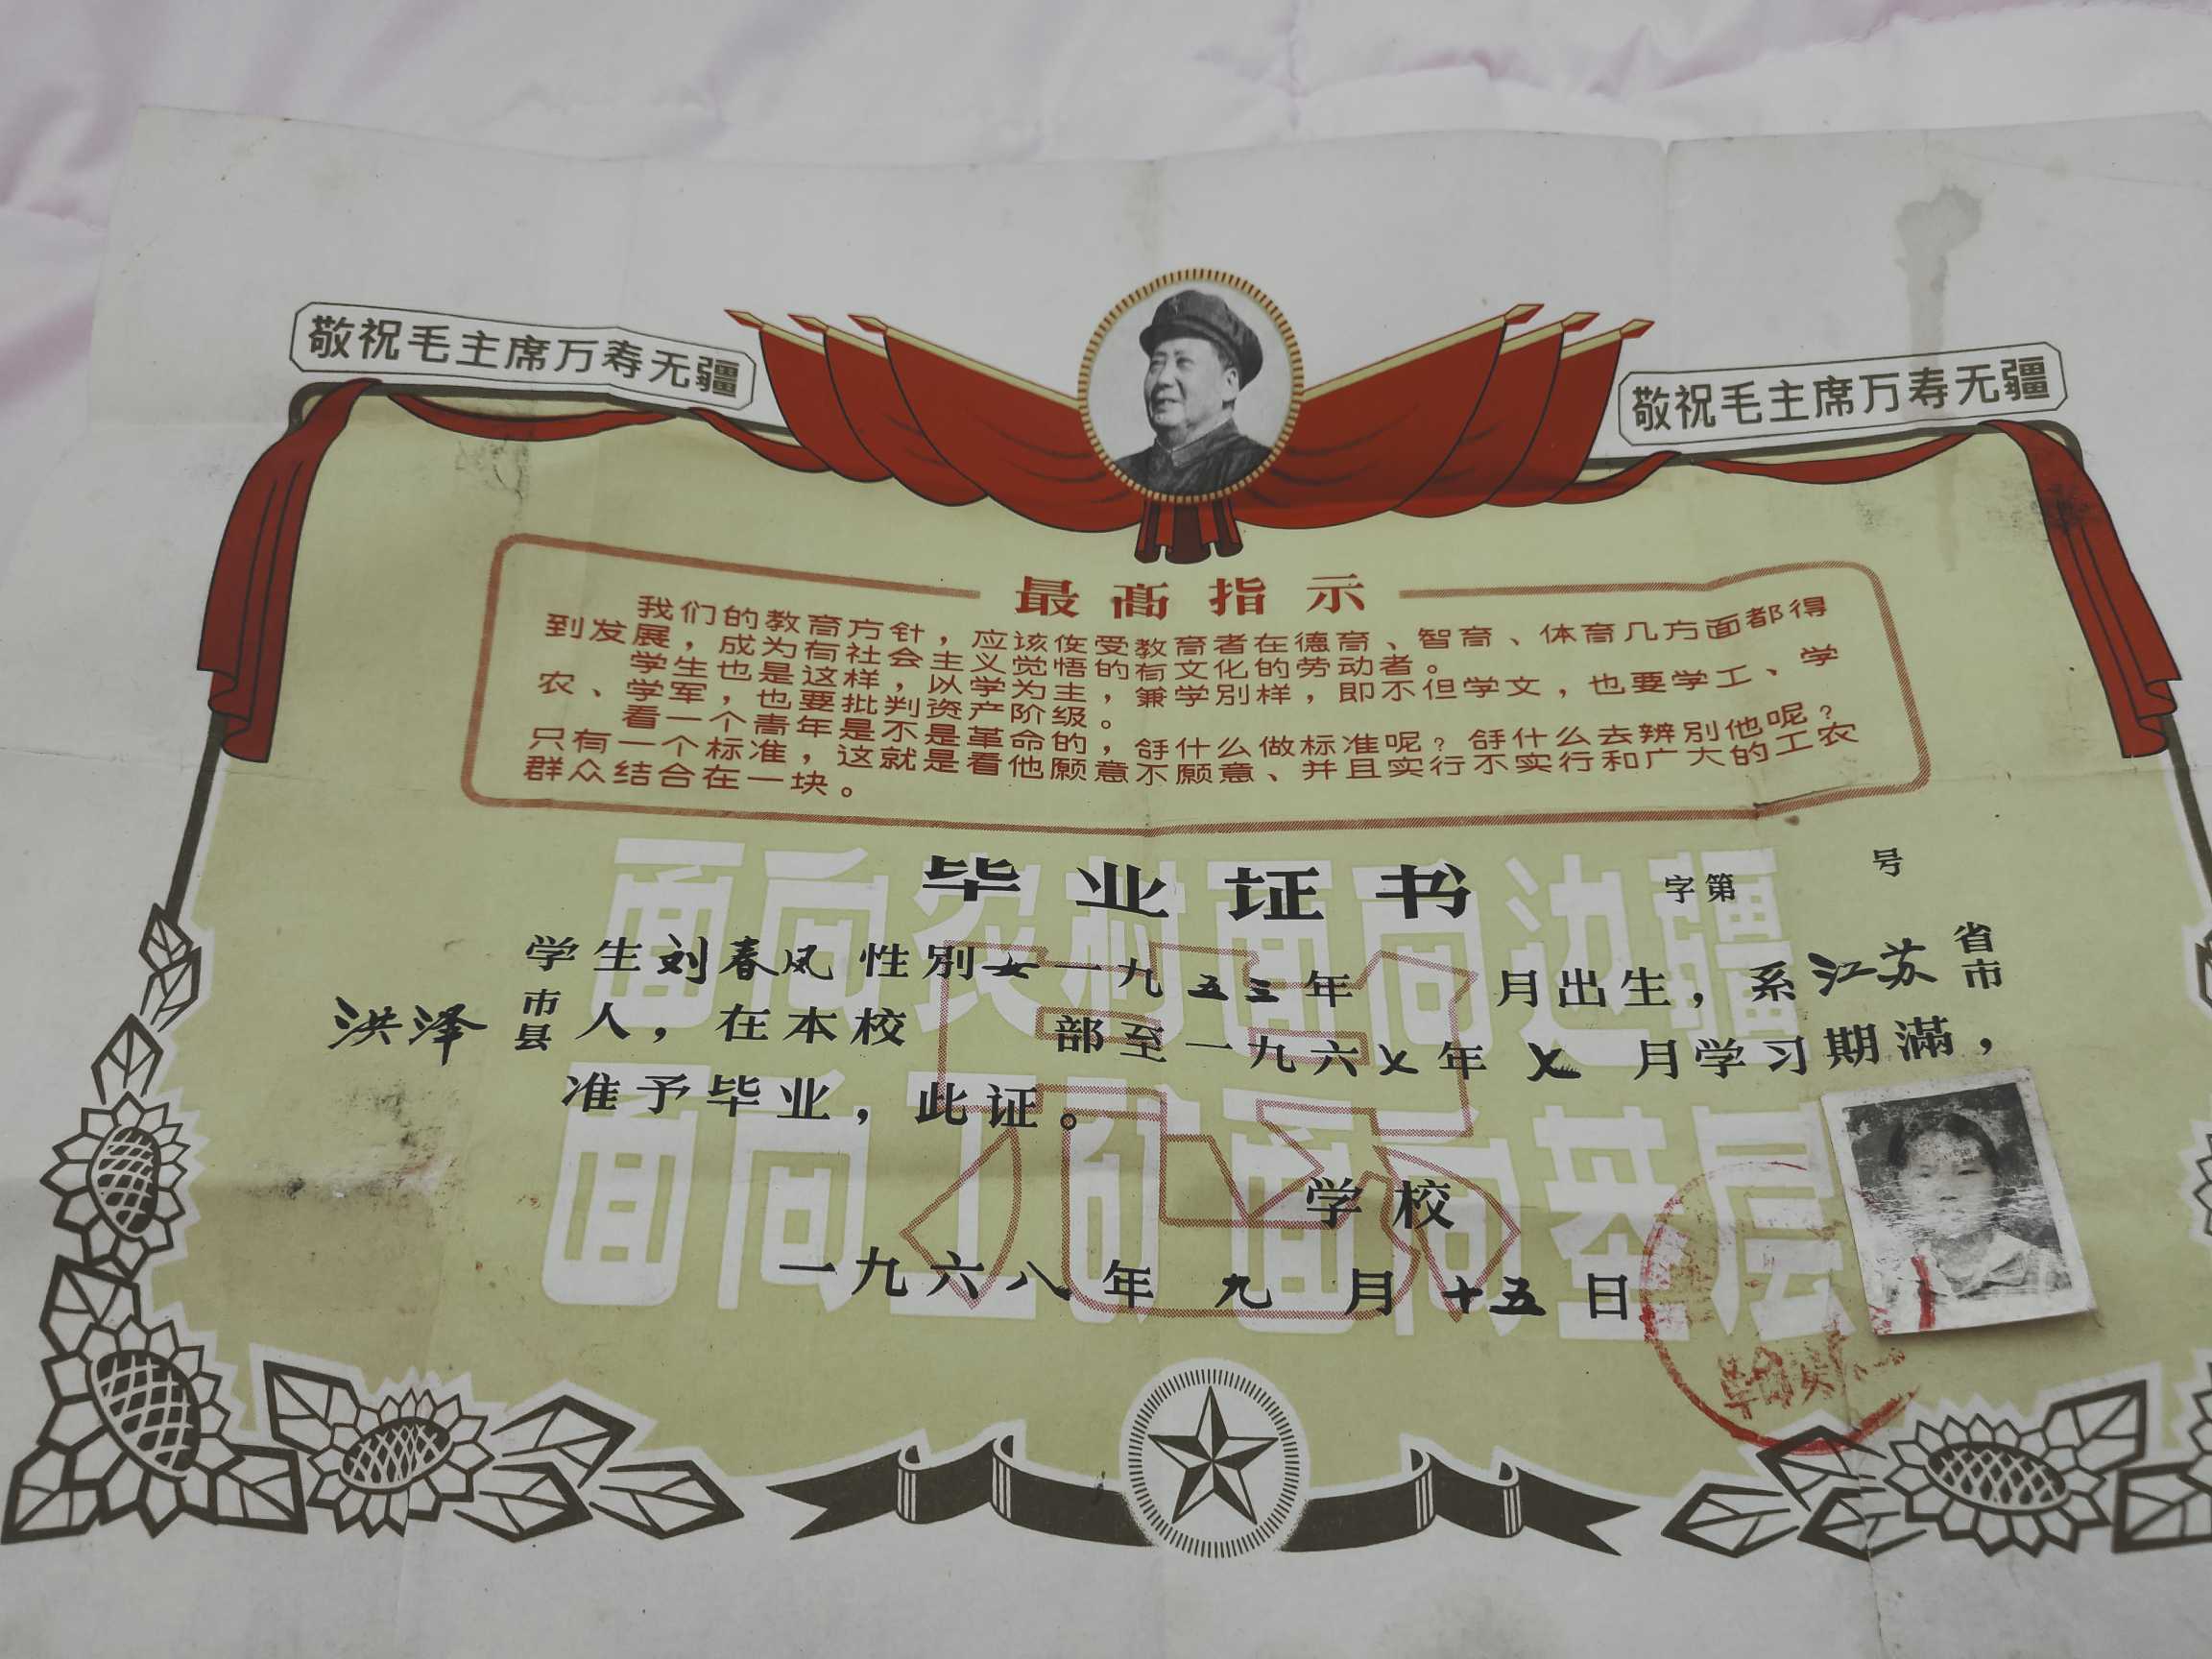 敬祝毛主席万寿无疆
敬祝毛主席万寿无疆
最高指示
我们的教育方针，应该使受教育者在德育、智育、体育几方面都得
到发展，成为有社会主义觉悟的有文化的劳动者。
学生也是这样，以学为主，兼学别样，即不但学文，也要学工、学
农、学军，也要批判资产阶级。
看一个青年是不是革命的，拿什么做标准呢？拿什么去辨别他呢？
只有一个标准，这就是看他愿意不愿意、并且实行不实行和广大的工农
群众结合在一块。
面向农村面向边疆
面向工矿面向基层
毕业证书
字第 号
学生刘春凤性别女一九五三年 月出生，系江苏省市
洪泽市县人，在本校 部至一九六七年七月学习期满，
准予毕业，此证。
学校
一九六八年九月十五日